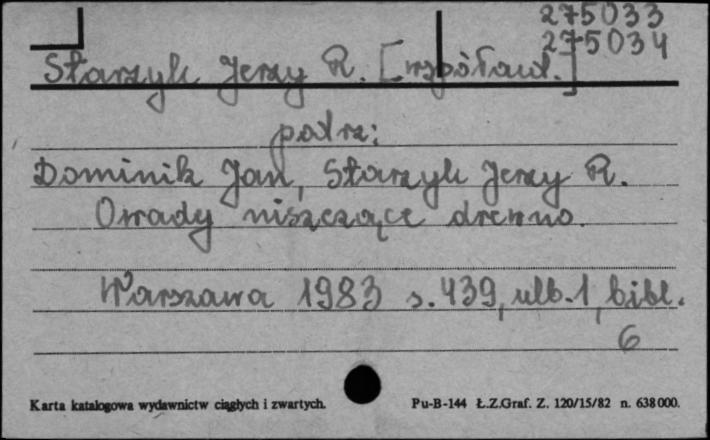 275033
275034
Starzyk Jerzy R. [współaut.]
patrz:
Dominik Jan, Starzyk Jerzy R.
Owady niszczące drewno.
Warszawa 1983 s. 439, nlb. 1, bibl.
6
Karta katalogowa wydawnictw ciągłych i zwartych. Pu-B-144 Ł.Z.Graf. Z. 120/15/82 n. 638000.